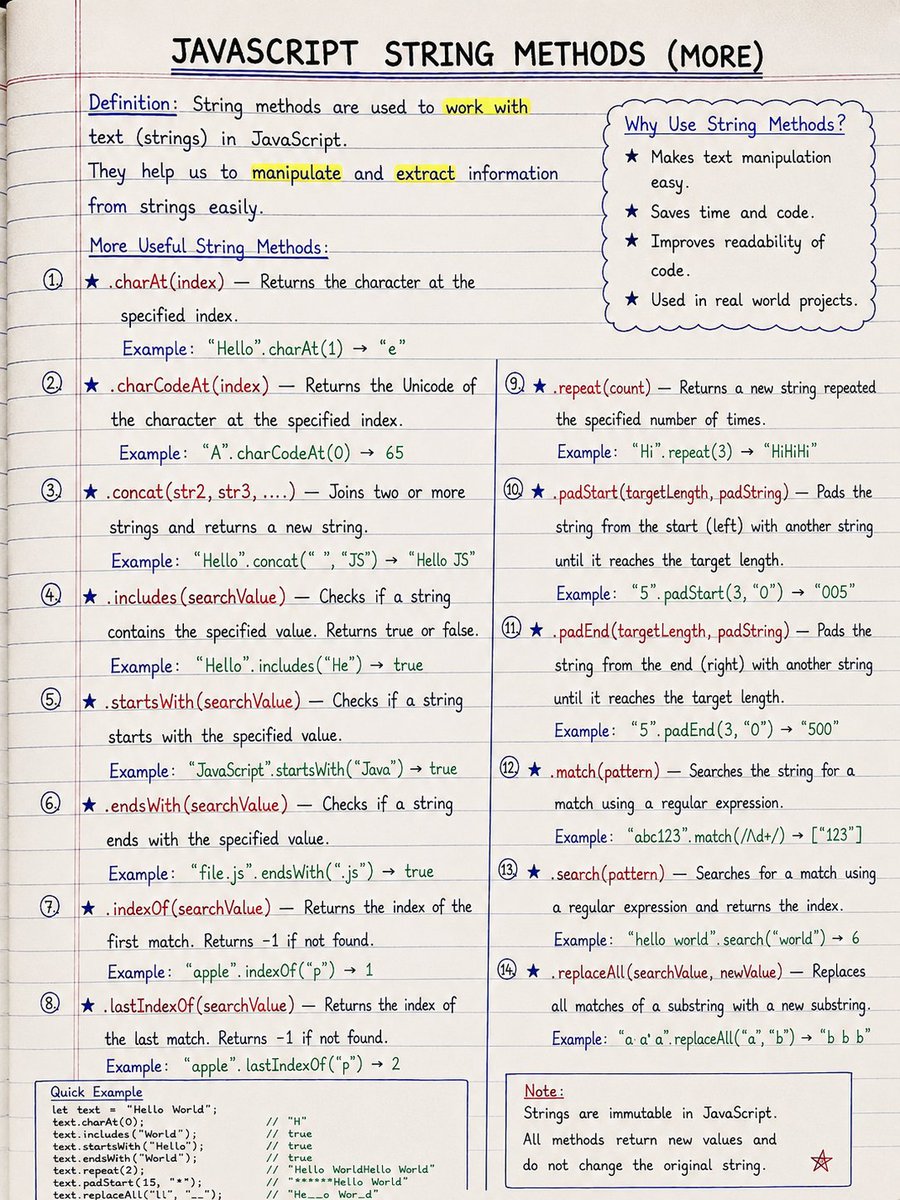 JAVASCRIPT STRING METHODS (MORE)
Definition: String methods are used to work with
text (strings) in JavaScript.
They help us to manipulate and extract information
from strings easily.
Why Use String Methods?
★ Makes text manipulation
easy.
★ Saves time and code.
★ Improves readability of
code.
★ Used in real world projects.
More Useful String Methods:
1. ★ .charAt(index) — Returns the character at the
specified index.
Example: "Hello".charAt(1) → "e"
2. ★ .charCodeAt(index) — Returns the Unicode of
the character at the specified index.
Example: "A".charCodeAt(0) → 65
3. ★ .concat(str2, str3, ....) — Joins two or more
strings and returns a new string.
Example: "Hello".concat(" ", "JS") → "Hello JS"
4. ★ .includes(searchValue) — Checks if a string
contains the specified value. Returns true or false.
Example: "Hello".includes("He") → true
5. ★ .startsWith(searchValue) — Checks if a string
starts with the specified value.
Example: "JavaScript".startsWith("Java") → true
6. ★ .endsWith(searchValue) — Checks if a string
ends with the specified value.
Example: "file.js".endsWith(".js") → true
7. ★ .indexOf(searchValue) — Returns the index of the
first match. Returns -1 if not found.
Example: "apple".indexOf("p") → 1
8. ★ .lastIndexOf(searchValue) — Returns the index of
the last match. Returns -1 if not found.
Example: "apple".lastIndexOf("p") → 2
Quick Example
let text = "Hello World";
text.charAt(0); // "H"
text.includes("World"); // true
text.startsWith("Hello"); // true
text.endsWith("World"); // true
text.repeat(2); // "Hello WorldHello World"
text.padStart(15, "*"); // "******Hello World"
text.replaceAll("ll", "__"); // "He__o Wor_d"
9. ★ .repeat(count) — Returns a new string repeated
the specified number of times.
Example: "Hi".repeat(3) → "HiHiHi"
10. ★ .padStart(targetLength, padString) — Pads the
string from the start (left) with another string
until it reaches the target length.
Example: "5".padStart(3, "0") → "005"
11. ★ .padEnd(targetLength, padString) — Pads the
string from the end (right) with another string
until it reaches the target length.
Example: "5".padEnd(3, "0") → "500"
12. ★ .match(pattern) — Searches the string for a
match using a regular expression.
Example: "abc123".match(/\d+/) → ["123"]
13. ★ .search(pattern) — Searches for a match using
a regular expression and returns the index.
Example: "hello world".search("world") → 6
14. ★ .replaceAll(searchValue, newValue) — Replaces
all matches of a substring with a new substring.
Example: "a a a".replaceAll("a", "b") → "b b b"
Note:
Strings are immutable in JavaScript.
All methods return new values and
do not change the original string.